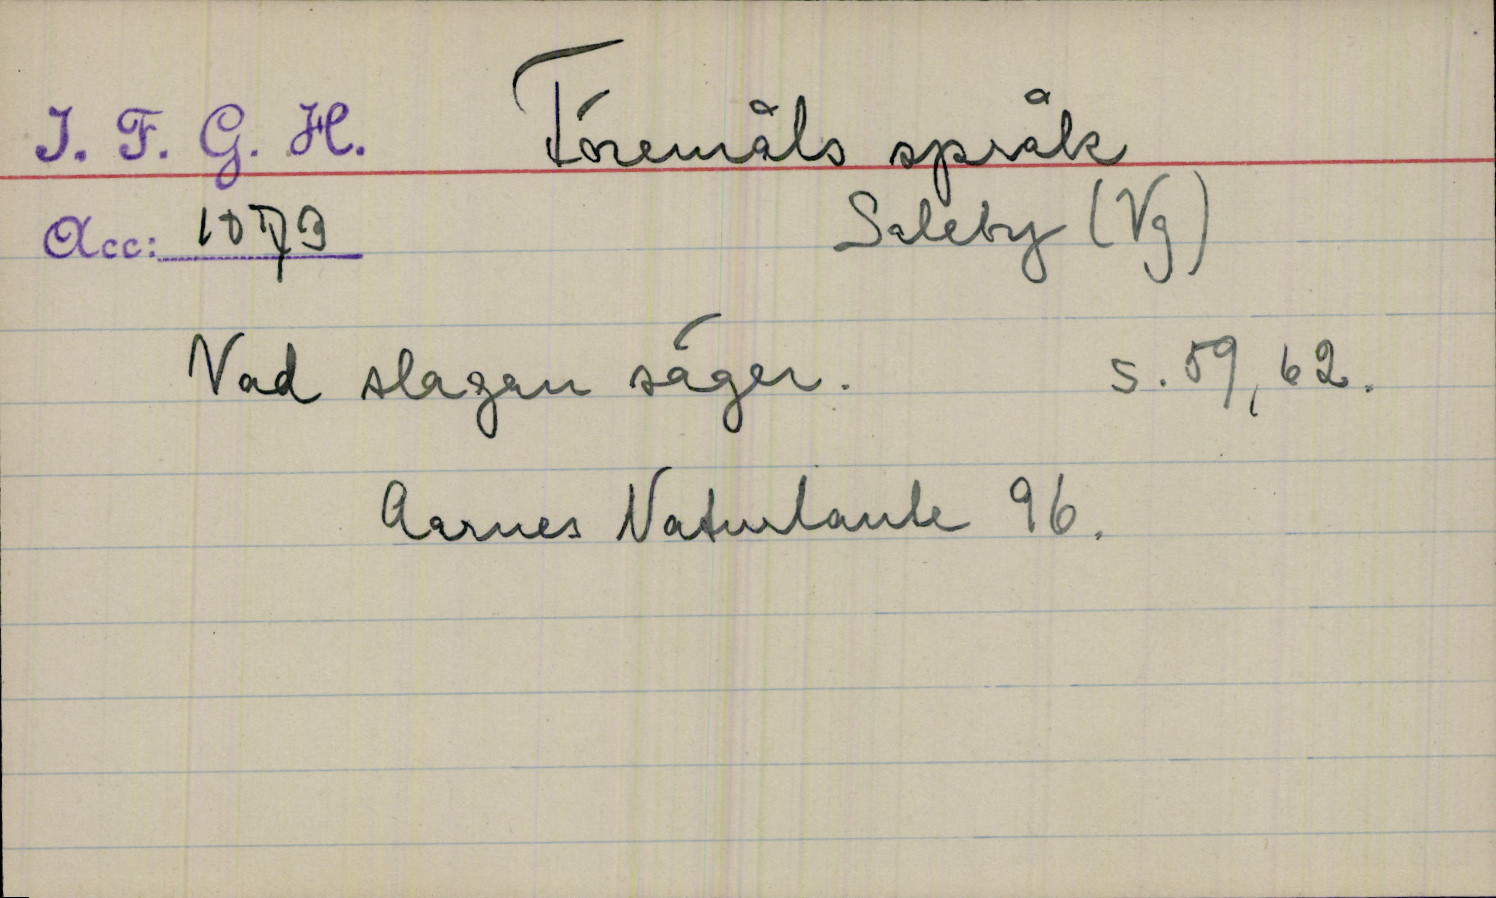 I. F. G. H. Föremåls språk
Acc: 1073 Saleby (Vg)
Vad slagan säger. s. 59, 62.
Aarnes Naturlaute 96.